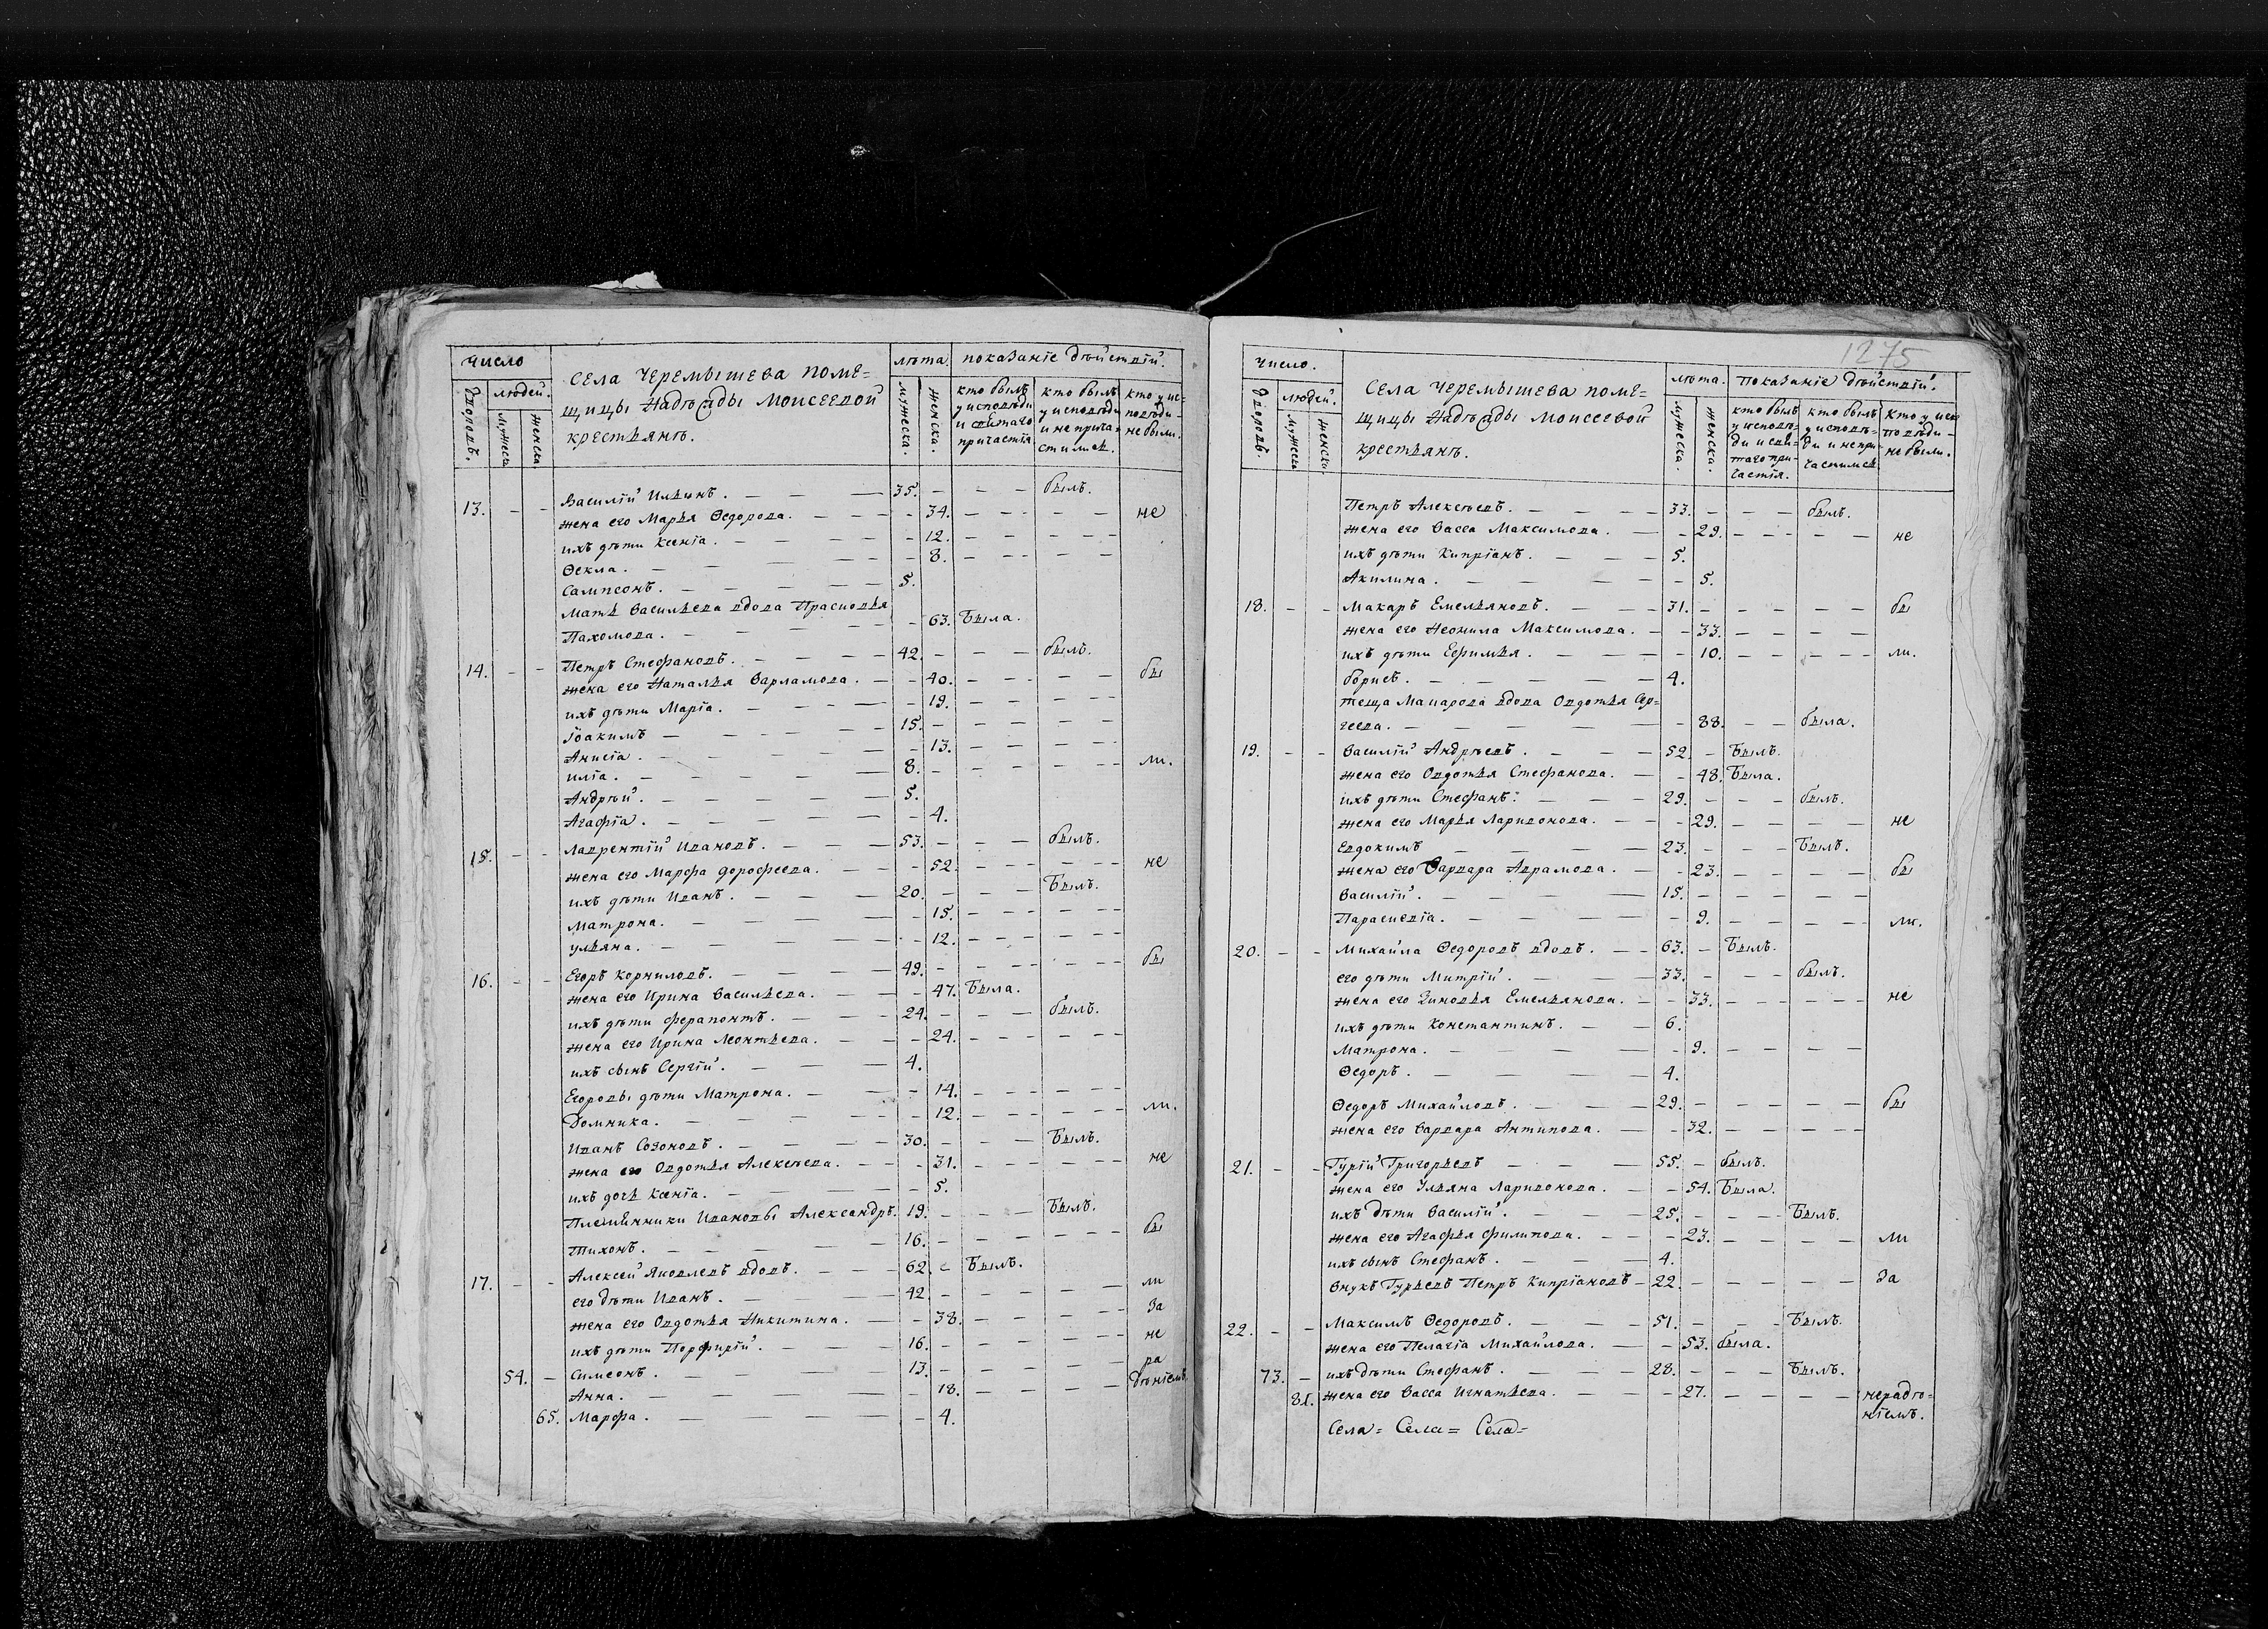 число
дворовъ.
людей.
мужеска
женска
села Черемышева поме=
щицы Надѣжды Моисеевой
крестьянъ.
лѣта
мужеска.
женска.
показаніе дѣйствій.
кто былъ
у исповѣди
и святаго
причастія.
кто былъ
у исповѣди
и не прича=
стился.
кто у ис=
повѣди
не были.
13. - - Василій Ильинъ. 35. - былъ.
жена его Марья Ѳедорова. - 34. - не
ихъ дѣти Ксенія. - 12.
Ѳекла. - 8.
Сампсонъ. 5.
Мать Васильева вдова Прасковья
Пахомова. - 63. Была.
14. - - Петръ Стефановъ. 42. - былъ.
жена его Наталья Варламова. - 40. - бы
ихъ дѣти Марія. - 19.
Іоакимъ 15.
Анисія. - 13.
илія. 8. - ли.
Андрей. 5.
Агафія. - 4.
15. - - Лаврентій Ивановъ. 53. - былъ.
жена его Марфа дорофеева. - 52. - не
ихъ дѣти Иванъ. 20. - Былъ.
Матрона. - 15.
ульяна. - 12.
16. - - Егоръ Корниловъ. 49. - бы
жена его Ирина Васильева. - 47. Была.
ихъ дѣти ферапонтъ. 24. - былъ.
жена его Ирина Леонтьева. - 24.
ихъ сынъ Сергій. 4.
Егоровы дѣти Матрона. - 14.
Домника. - 12. - ли.
Иванъ Созоновъ. 30. - Былъ.
жена его Овдотья Алексеева. - 31. - не
ихъ дочь Ксенія. - 5.
Племянники Ивановы Александръ. 19. - Былъ.
Тихонъ. 16. - бы
17. - - Алексей Яковлевъ вдовъ. 62. - Былъ.
его дѣти Иванъ. 42 - ли
жена его Овдотья Никитина. - 38. - за
ихъ дѣти Порфирій. 16. - не
54. - Симеонъ. 13. - ра
Анна. - 18. - дѣніемъ.
65. Марфа. - 4.
1275
число.
дворовъ.
людей.
мужеска
женска
села Черемышева поме=
щицы Надѣжды Моисеевой
крестьянъ.
лѣта.
мужеска.
женска.
показаніе дѣйствій.
кто былъ
у исповѣ=
ди и свя=
таго при=
частія.
кто былъ
у исповѣ=
ди и непри=
частился
кто у ис=
повѣди
не были.
Петръ Алексеевъ. 33. - былъ.
жена его Васса Максимова. - 29. - не
ихъ дѣти Кипріанъ. 5.
Акилина. - 5.
18. - - Макаръ Емельяновъ. 31. - бы
жена его Неонила Максимова. - 33.
ихъ дѣти Ефимья. - 10. - ли.
Борисъ. 4.
теща Макарова вдова Овдотья Сер=
геева. - 88. - была.
19. - - Василій Андреевъ. 52. - Былъ.
жена его Овдотья Стефанова. - 48. Была.
ихъ дѣти Стефанъ. 29. - былъ.
жена его Марья Ларивонова. - 29. - не
Евдокимъ 23. - Былъ.
жена его Варвара Аврамова. - 23. - бы
Василій. 15.
Параскевія. - 9. - ли.
20. - - Михайла Ѳедоровъ вдовъ. 63. - Былъ.
его дѣти Митрій. 33. - былъ.
жена его Зиновья Емельянова. - 33. - не
ихъ дѣти Константинъ. 6.
Матрона. - 9.
Ѳедоръ. 4.
Ѳедоръ Михайловъ. 29. - бы
жена его Варвара Антипова. - 32.
21. - - Гурій Григорьевъ 55. - былъ.
жена его Ульяна Ларивонова. - 54. Была.
ихъ дѣти Василій. 25. - Былъ.
жена его Агафья филипова. - 23. - ли
ихъ сынъ Стефанъ. 4.
Внукъ Гурьевъ Петръ Кипріановъ 22. - за
22. - - Максимъ Ѳедоровъ. 51. - Былъ.
жена его Пелагія Михайлова. - 53. была.
73. - ихъ дѣти Стефанъ. 28. - Былъ.
81. жена его Васса Игнатьева. - 27. - нерадѣ=
ніемъ.
Села= Села= Села=